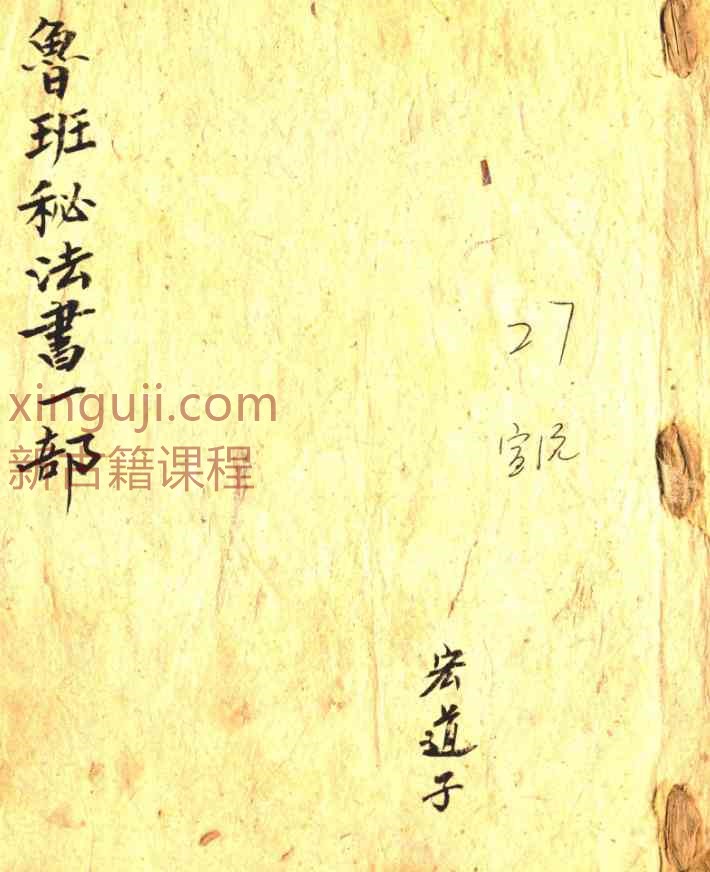 魯班秘法書一部
xinguji.com
新古籍课程
27
宏道子